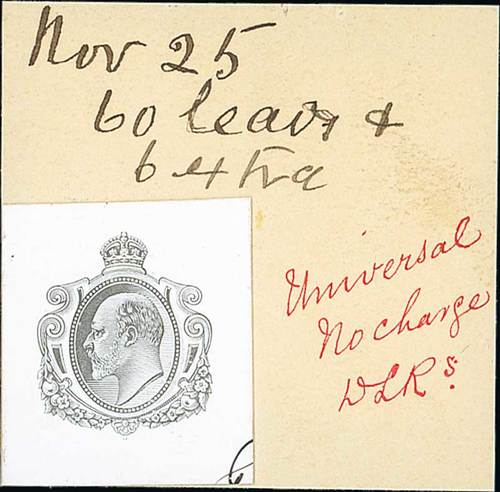 Nov 25
60 leads &
6 extra
Universal
No charge
DLRs.